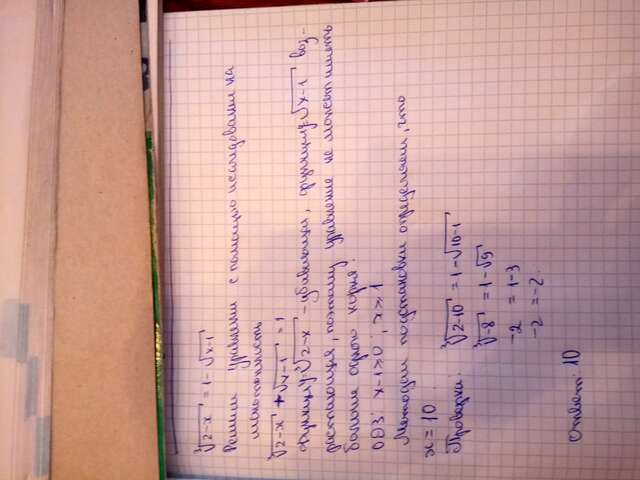 ∛(2-x) = 1 - √(x-1)
Решим уравнение с помощью исследования на
монотонность
∛(2-x) + √(x-1) = 1
Функция ∛(2-x) - убывающая, функция √(x-1) воз-
растающая, поэтому уравнение не может иметь
больше одного корня.
ОДЗ: x-1≥0, x≥1
Методом подстановки определяем, что
x = 10
Проверка: ∛(2-10) = 1 - √(10-1)
∛(-8) = 1 - √9
-2 = 1-3
-2 = -2.
Ответ: 10